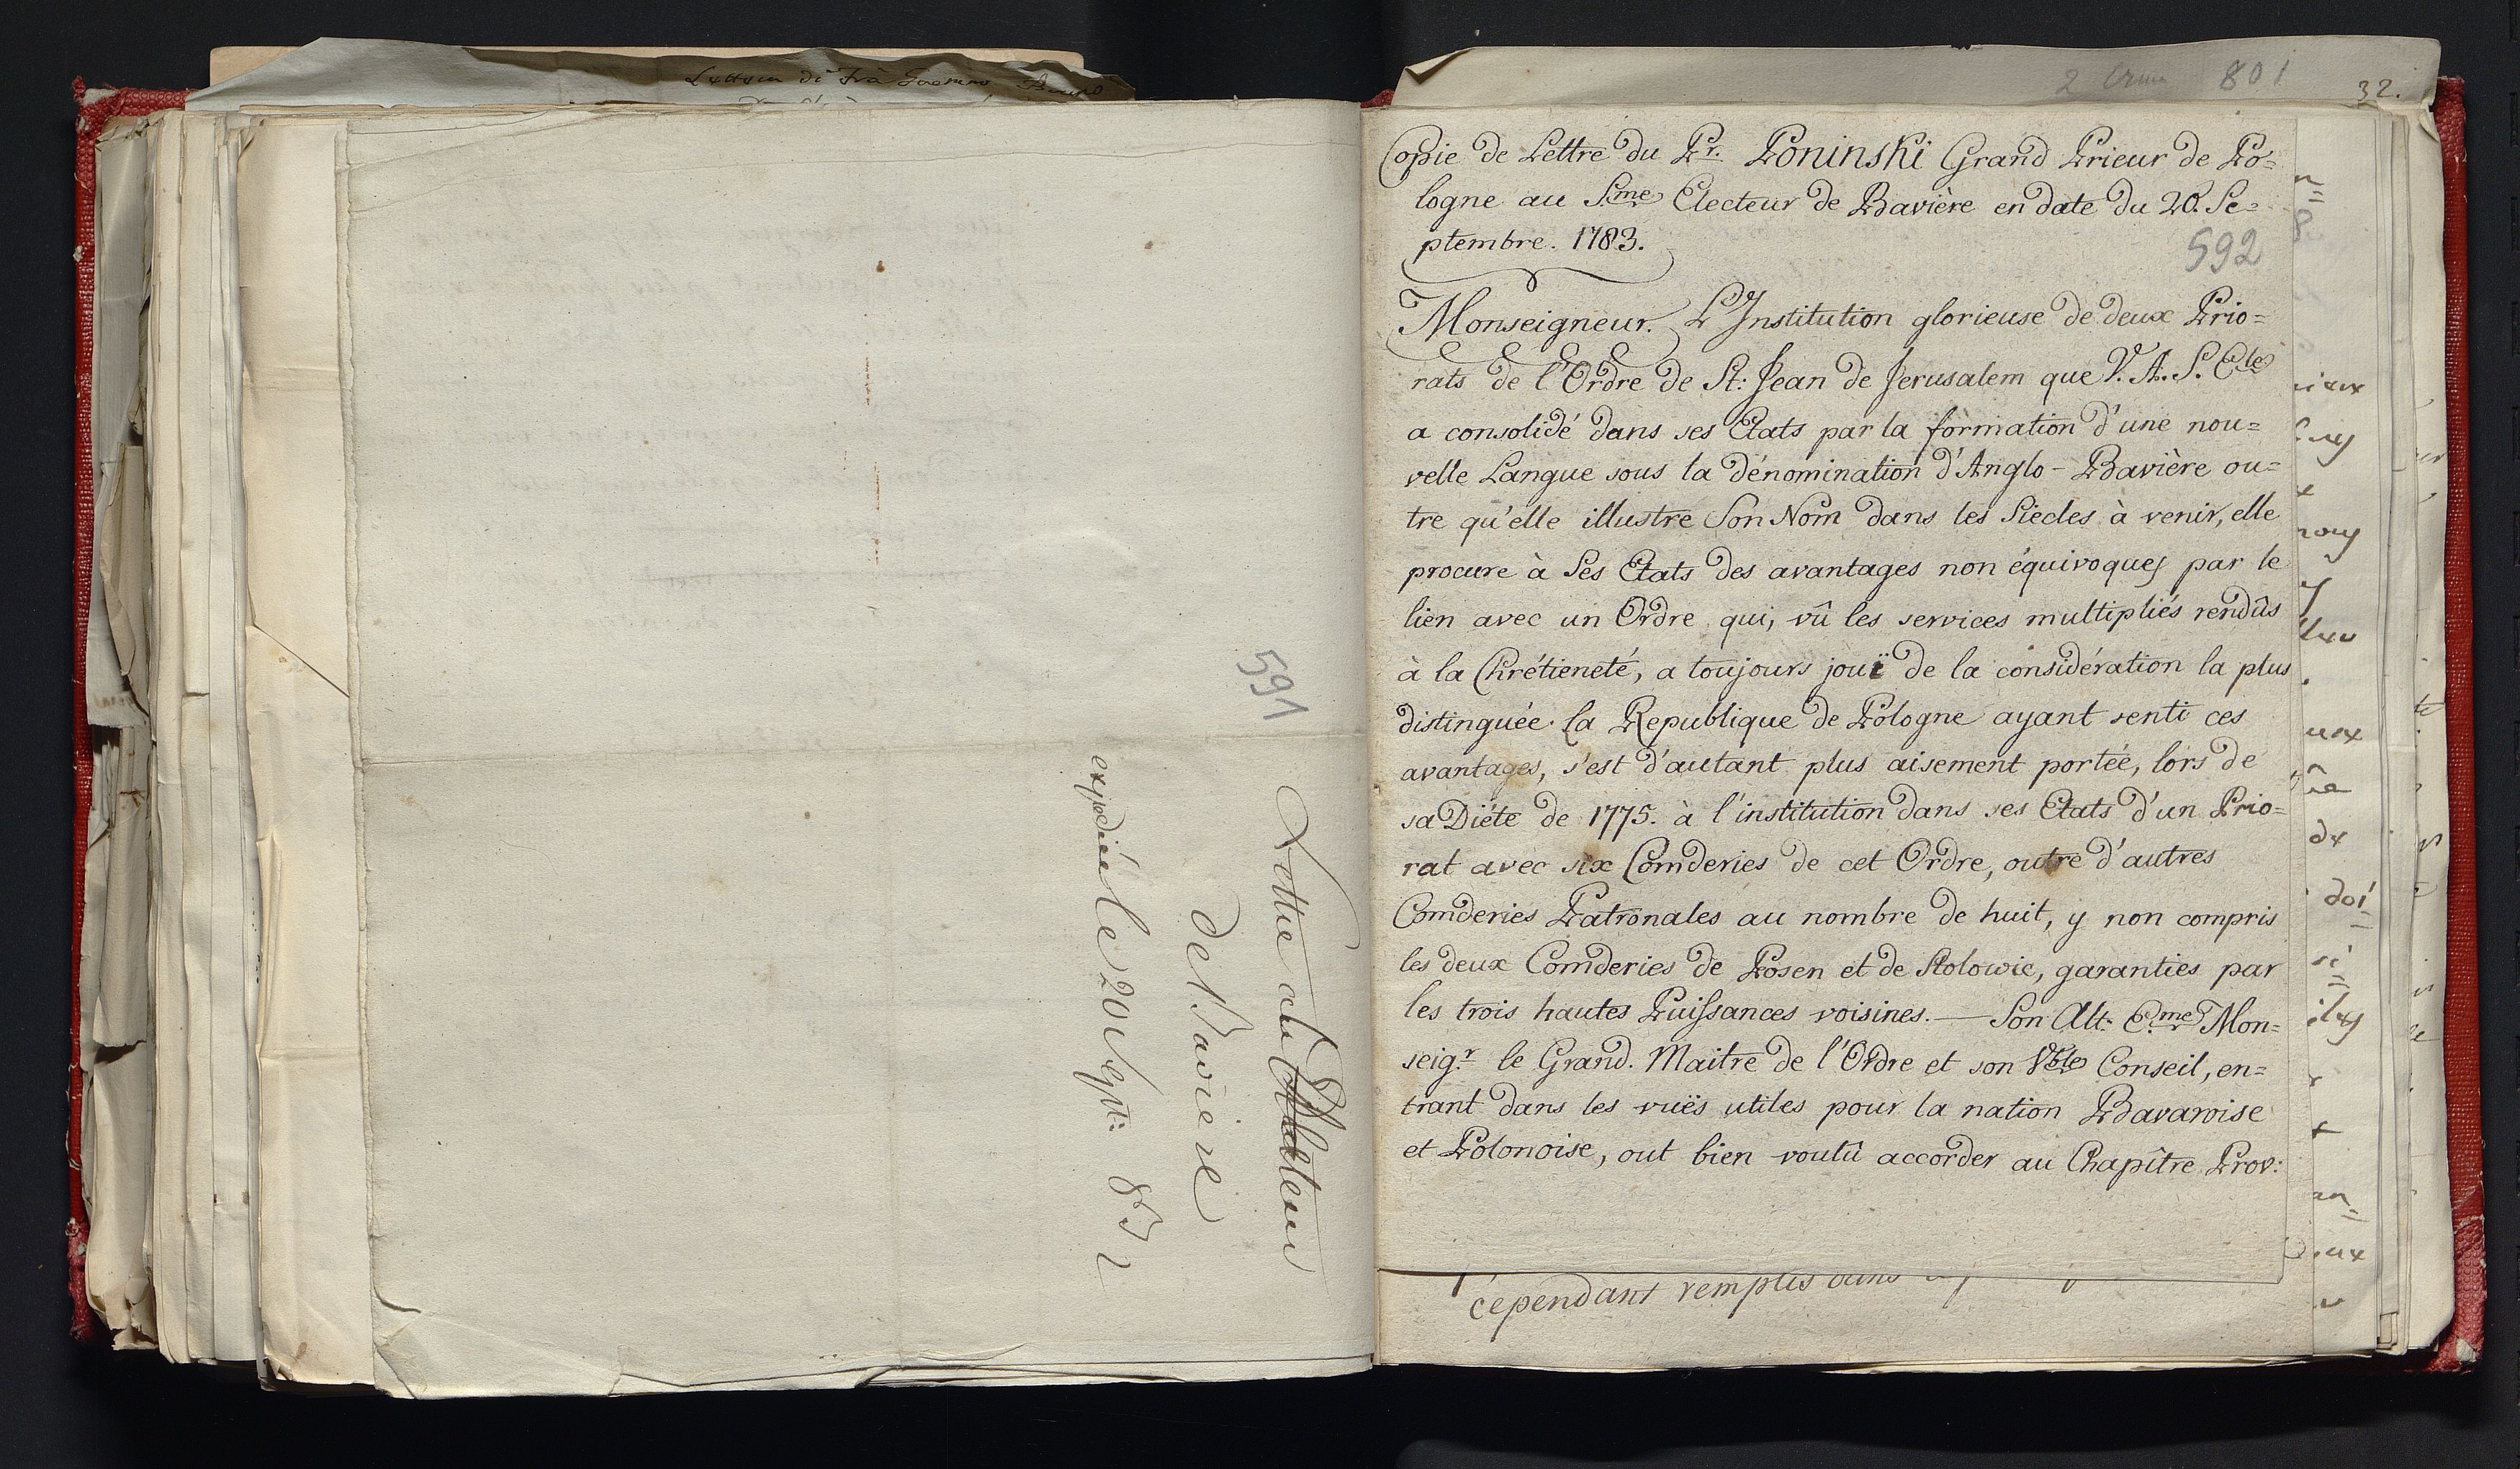 Lettera di Frà
591
Lettre à l'Electeur
de Bavière
expediée le 20 Sept: 83
801
32.
Copie de Lettre du Pr. Poninski Grand Prieur de Po=
logne au Sme Electeur de Bavière en date du 20. Se=
ptembre. 1783.
592
Monseigneur. L'Institution glorieuse de deux Prio=
rats de l'Ordre de St: Jean de Jerusalem que V. A. S. Ele
a consolidé dans ses Etats par la formation d'une nou=
velle Langue sous la dénomination d'Anglo-Bavière ou=
tre qu'elle illustre Son Nom dans les Siecles à venir, elle
procure à Ses Etats des avantages non équivoques par le
lien avec un Ordre qui, vû les services multipliés rendûs
à la Chrétieneté, a toujours jouï de la considération la plus
distinguée. La Republique de Pologne ayant senti ces
avantages, s'est d'autant plus aisement portée, lors de
sa Diéte de 1775. à l'institution dans ses Etats d'un Prio=
rat avec six Comderies de cet Ordre, outre d'autres
Comderies Patronales au nombre de huit, y non compris
les deux Comderies de Posen et de Stolowic, garanties par
les trois hautes Puissances voisines. — Son Alt: Eme Mon=
seigr le Grand. Maitre de l'Ordre et son Vble Conseil, en=
trant dans les vuës utiles pour la nation Bavaroise
et Polonoise, out bien voulû accorder au Chapître Prov:
cependant remplis dans